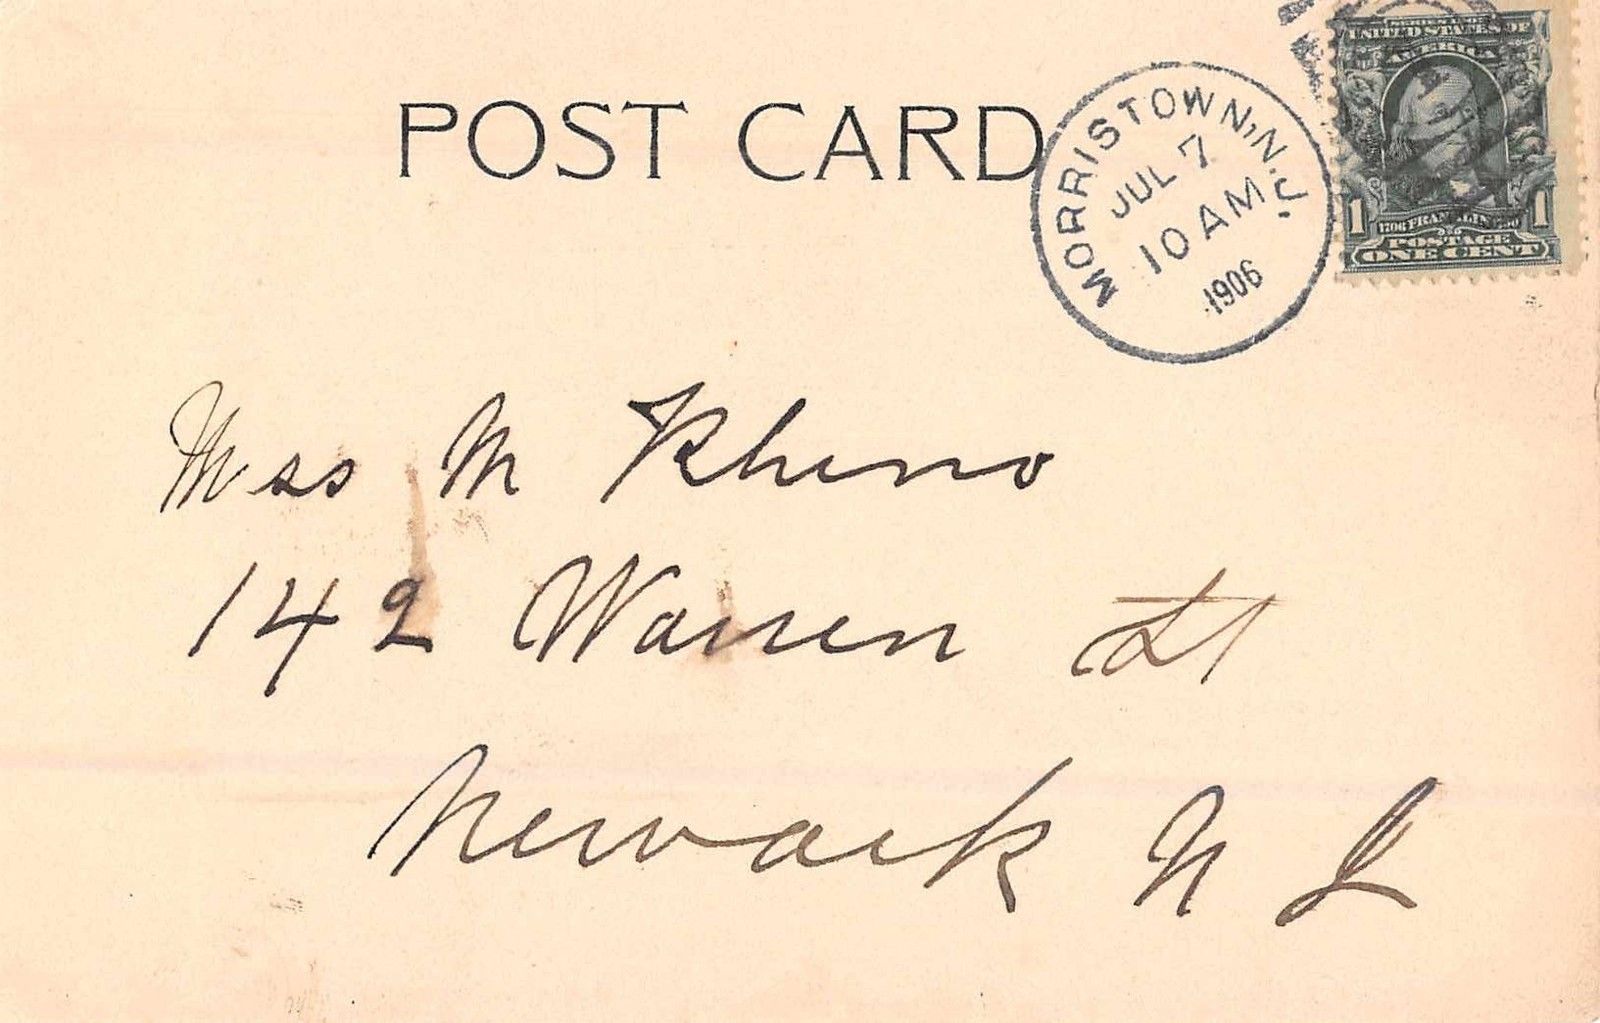 POST CARD
MORRISTOWN, N.J.
JUL 7
10 AM
1906
SERIES 1902
UNITED STATES OF
AMERICA
1 1706 FRANKLIN 1790 1
POSTAGE
ONE CENT
Miss M Rheno
142 Warren St
Newark N J